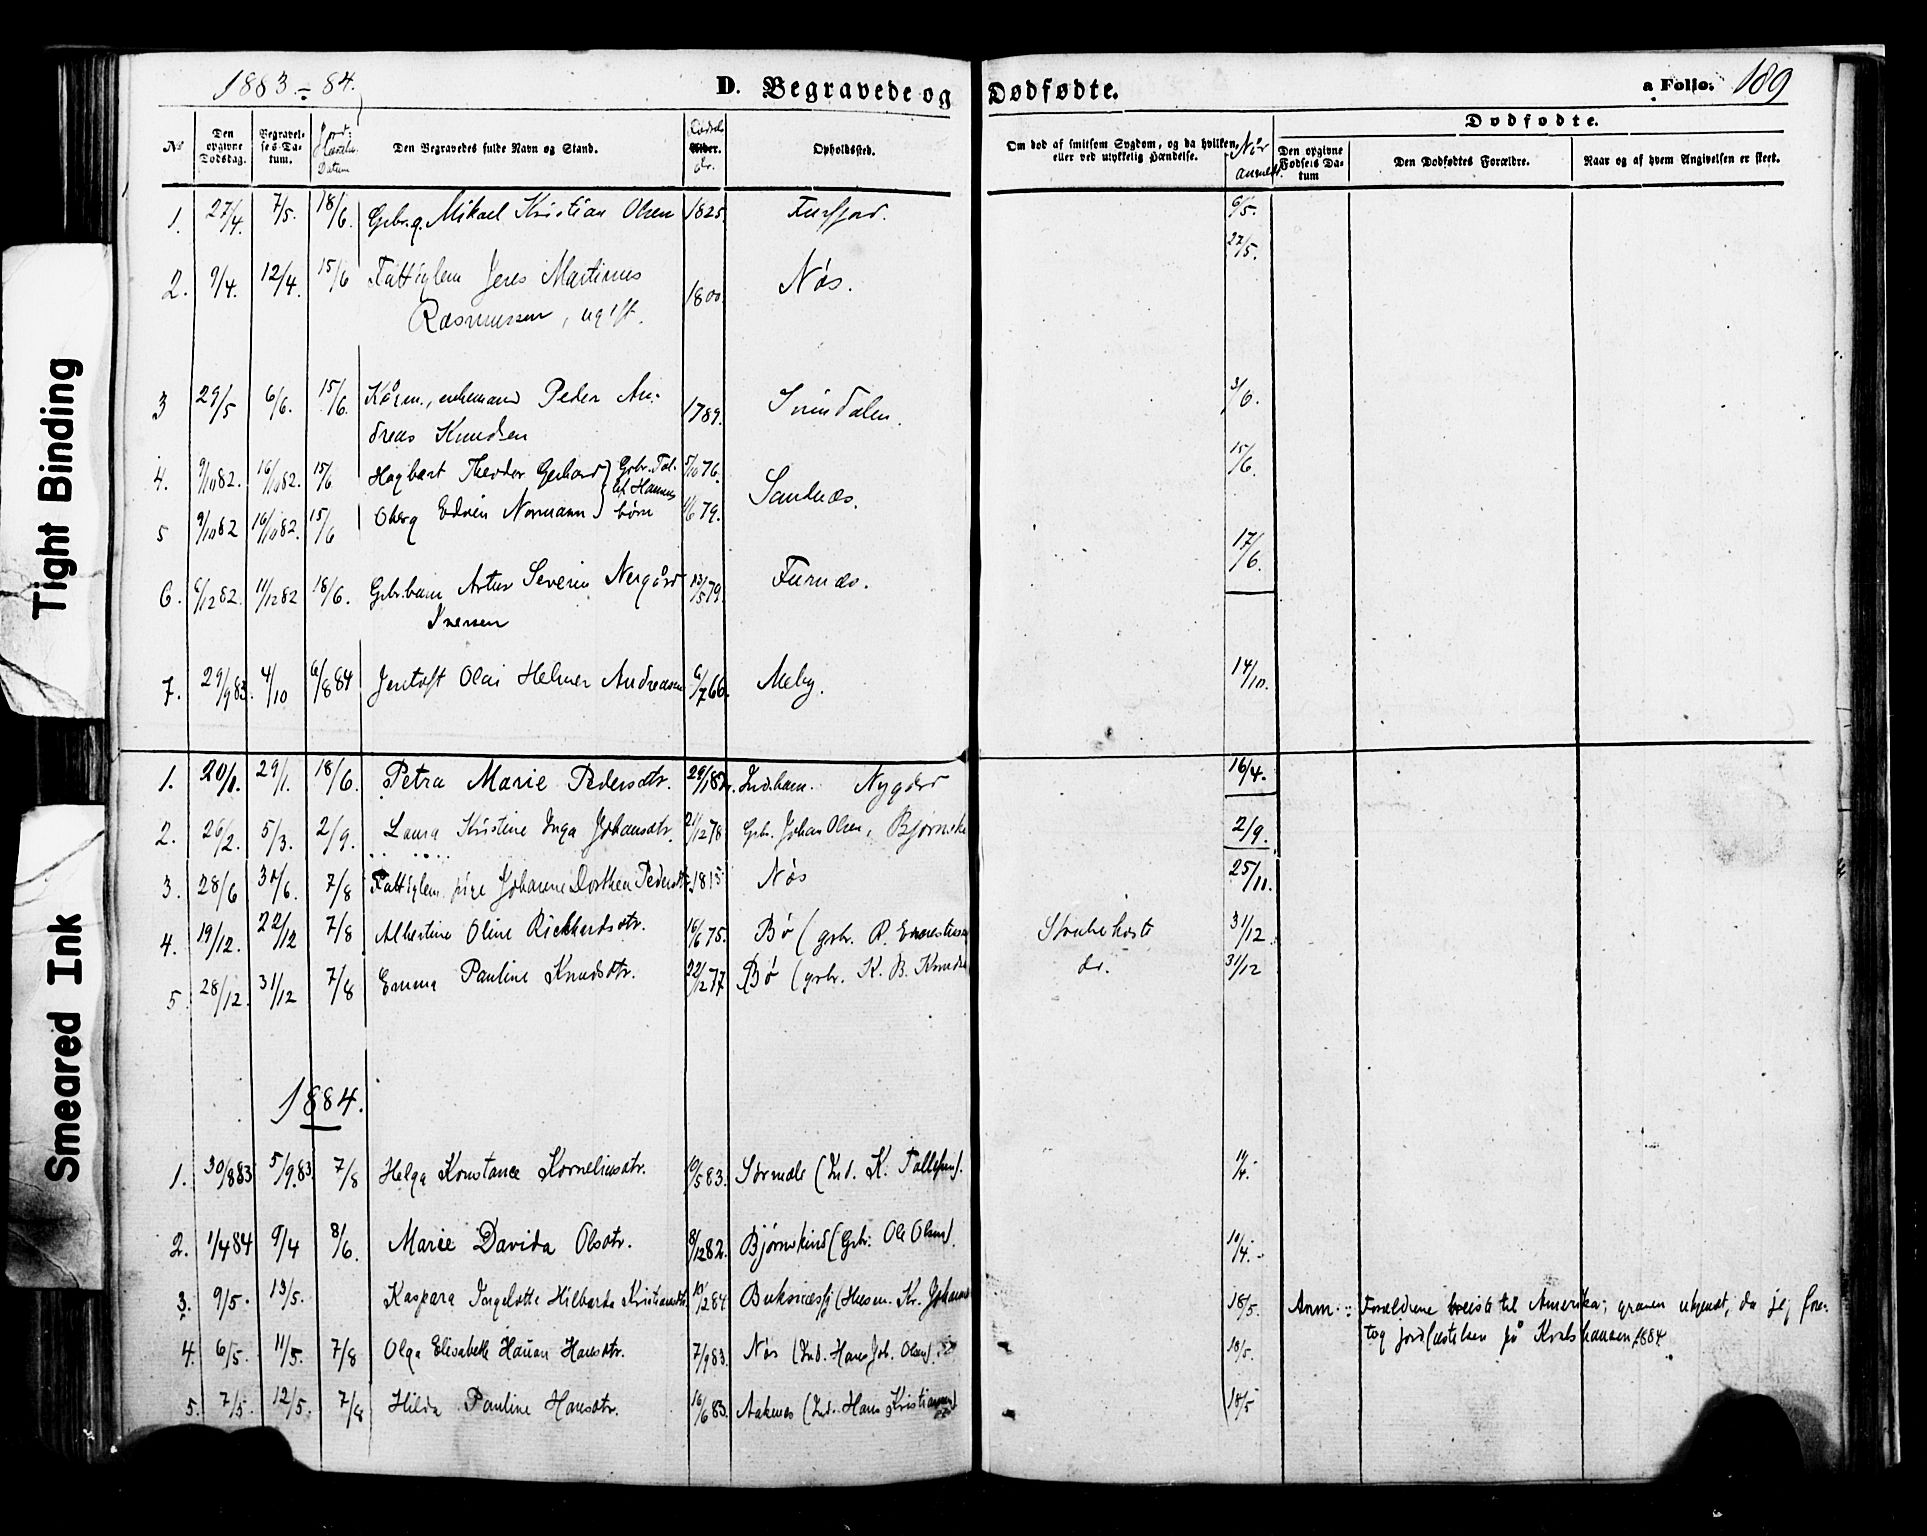 1883 - 84.
D. Begravede og Dødfødte.
a Folio. 189
No
Den opgivne Dødsdag.
Begravelses-Datum.
Datum
Den Begravedes fulde Navn og Stand.
Fødsels
Alder.
År.
Opholdssted.
Om død af smitsom Sygdom, og da hvilken, eller ved ulykkelig Hændelse.
Når anmeldt.
Dødfødte.
Den opgivne Fødsels Datum
Den Dødfødtes Forældre.
Naar og af hvem Angivelsen er skeet.
1. 27/4. 7/5. 18/6. Gbr.g. Mikael Kristian Olsen 1825 6/5.
2. 9/4. 12/4. 15/6 Fattiglem Jens Martinus 1800. Nøs. 27/5.
Rasmussen, ugift.
3 29/5 6/6. 15/6. Kårm., enkemand Peder An- 1789. Svindalen. 3/6.
dreas Knudsen
4. 9/10 82. 16/10 82. 15/6 Hagbart Theodor Gerhard 5/10 76. Sandnæs. 15/6.
5 9/10 82 16/10 82. 15/6 Oberg Edvin Normann børn 79.
6. 6/12 82. 11/12 82 18/6. Gbr.barn Artur Severin Nergård 13/5 79. Furnæs. 17/6.
Iversen
7. 29/9 83. 4/10 6/8 84 Jentoft Olai Helmer Andreasen 6/7 66. Melby. 14/10.
1. 20/1. 29/1. 18/6. Petra Marie Pedersdtr. Ind.barn. Nygård 16/4.
2. 26/2. 5/3. 2/9. Laura Kristine Inga Johansdtr. 21/12 78 Gbr. Johan Olsen, Bjørnsk 2/9.
3. 28/6 7/8 Fattiglem pige Johanne Dorthea Pedersdtr. 1815 Nøs 25/11.
4. 19/12. 22/12 7/8 Albertine Oline Rickhardsdtr. 16/6 75. Bø (grbr. R. 31/12.
5. 28/12. 31/12 7/8 Emma Pauline Knudsdtr. 22/12 77 Bø (grbr. K. B. Knuds do. 31/12
1884.
1. 30/8 83 5/9 83. 7/8 Helga Konstance Korneliusdtr. 10/5 83. Sørmele (Ind. K. Tollefsen).
2. 1/4 84 9/4 8/6. Marie Davida Olsdtr. 8/12 82. Bjørnskind (Gbr: Ole Olsen). 10/4.
3. 9/5. 13/5. Kaspara Ingelotte Hilbarda Kristiansdtr. Buksnæsfj (Husm. Kr. Johans 18/5. Anm.: Forældrene breiste til Amerika; graven ukjendt, da jeg fore-
tog jordfæstelsen på Kvalshausen 1884.
4. 6/5. 11/5. 7/8 Olga Elisabeth Hauan Hansdtr. 7/9 83. Nøs (Ind. Hans Joh. Olsen). 18/5.
5. 7/5. 12/5. 7/8 Hilda Pauline Hansdtr. 16/6 83. Aaknes (Ind. Hans Kristiansen) 18/5
Tight Binding
Smeared Ink